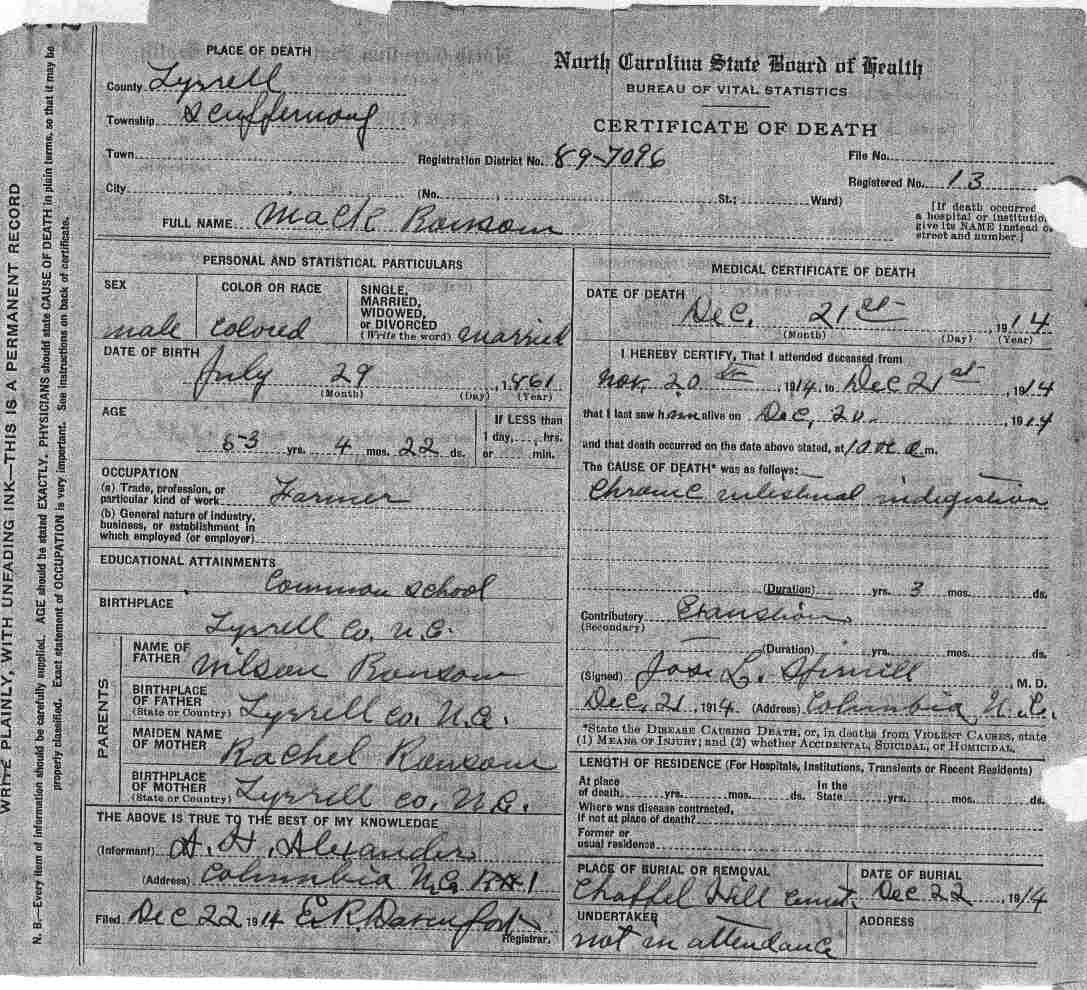 PLACE OF DEATH
County Tyrrell
Township Scuffernong
Town
City (No. St.; Ward)
North Carolina State Board of Health
BUREAU OF VITAL STATISTICS
CERTIFICATE OF DEATH
Registration District No. 89-7096
File No.
Registered No. 13
[If death occurred
a hospital or institutio
give its NAME instead o
street and number.]
FULL NAME Mack Ransom
PERSONAL AND STATISTICAL PARTICULARS
SEX
male
COLOR OR RACE
Colored
SINGLE,
MARRIED,
WIDOWED,
or DIVORCED
(Write the word) married
DATE OF BIRTH
July 29, 1861
(Month) (Day) (Year)
AGE
53 yrs. 4 mos. 22 ds.
If LESS than
1 day, hrs.
or min.
OCCUPATION
(a) Trade, profession, or
particular kind of work Farmer
(b) General nature of industry,
business, or establishment in
which employed (or employer)
EDUCATIONAL ATTAINMENTS
Common School
BIRTHPLACE
Tyrrell Co. N.C.
PARENTS
NAME OF
FATHER Wilson Ransom
BIRTHPLACE
OF FATHER
(State or Country) Tyrrell Co. N.C.
MAIDEN NAME
OF MOTHER Rachel Ransom
BIRTHPLACE
OF MOTHER
(State or Country) Tyrrell Co. N.C.
THE ABOVE IS TRUE TO THE BEST OF MY KNOWLEDGE
(Informant) A. H. Alexander
(Address) Columbia N.C. R#1
Filed Dec 22 1914 E. R. Davenport
Registrar.
MEDICAL CERTIFICATE OF DEATH
DATE OF DEATH
Dec. 21st, 1914
(Month) (Day) (Year)
I HEREBY CERTIFY, That I attended deceased from
Nov. 20, 1914 to Dec 21st, 1914
that I last saw him alive on Dec, 20, 1914
and that death occurred on the date above stated, at a m.
The CAUSE OF DEATH* was as follows:
Chronic intestinal indigestion
(Duration) yrs. 3 mos. ds.
Contributory
(Secondary)
(Duration) yrs. mos. ds.
(Signed) Jos. L. Spruill, M. D.
Dec, 21, 1914. (Address) Columbia, N.C.
*State the DISEASE CAUSING DEATH, or, in deaths from VIOLENT CAUSES, state
(1) MEANS OF INJURY; and (2) whether ACCIDENTAL, SUICIDAL, OR HOMICIDAL.
LENGTH OF RESIDENCE (For Hospitals, Institutions, Transients or Recent Residents)
At place
of death yrs. mos. ds.
In the
State yrs. mos. ds.
Where was disease contracted,
If not at place of death?
Former or
usual residence
PLACE OF BURIAL OR REMOVAL
Chappel Hill
DATE OF BURIAL
Dec 22, 1914
UNDERTAKER
not in attendance
ADDRESS
WRITE PLAINLY, WITH UNFADING INK—THIS IS A PERMANENT RECORD
N. B.—Every item of information should be carefully supplied. AGE should be stated EXACTLY. PHYSICIANS should state CAUSE OF DEATH in plain terms, so that it may be
properly classified. Exact statement of OCCUPATION is very important. See instructions on back of certificate.